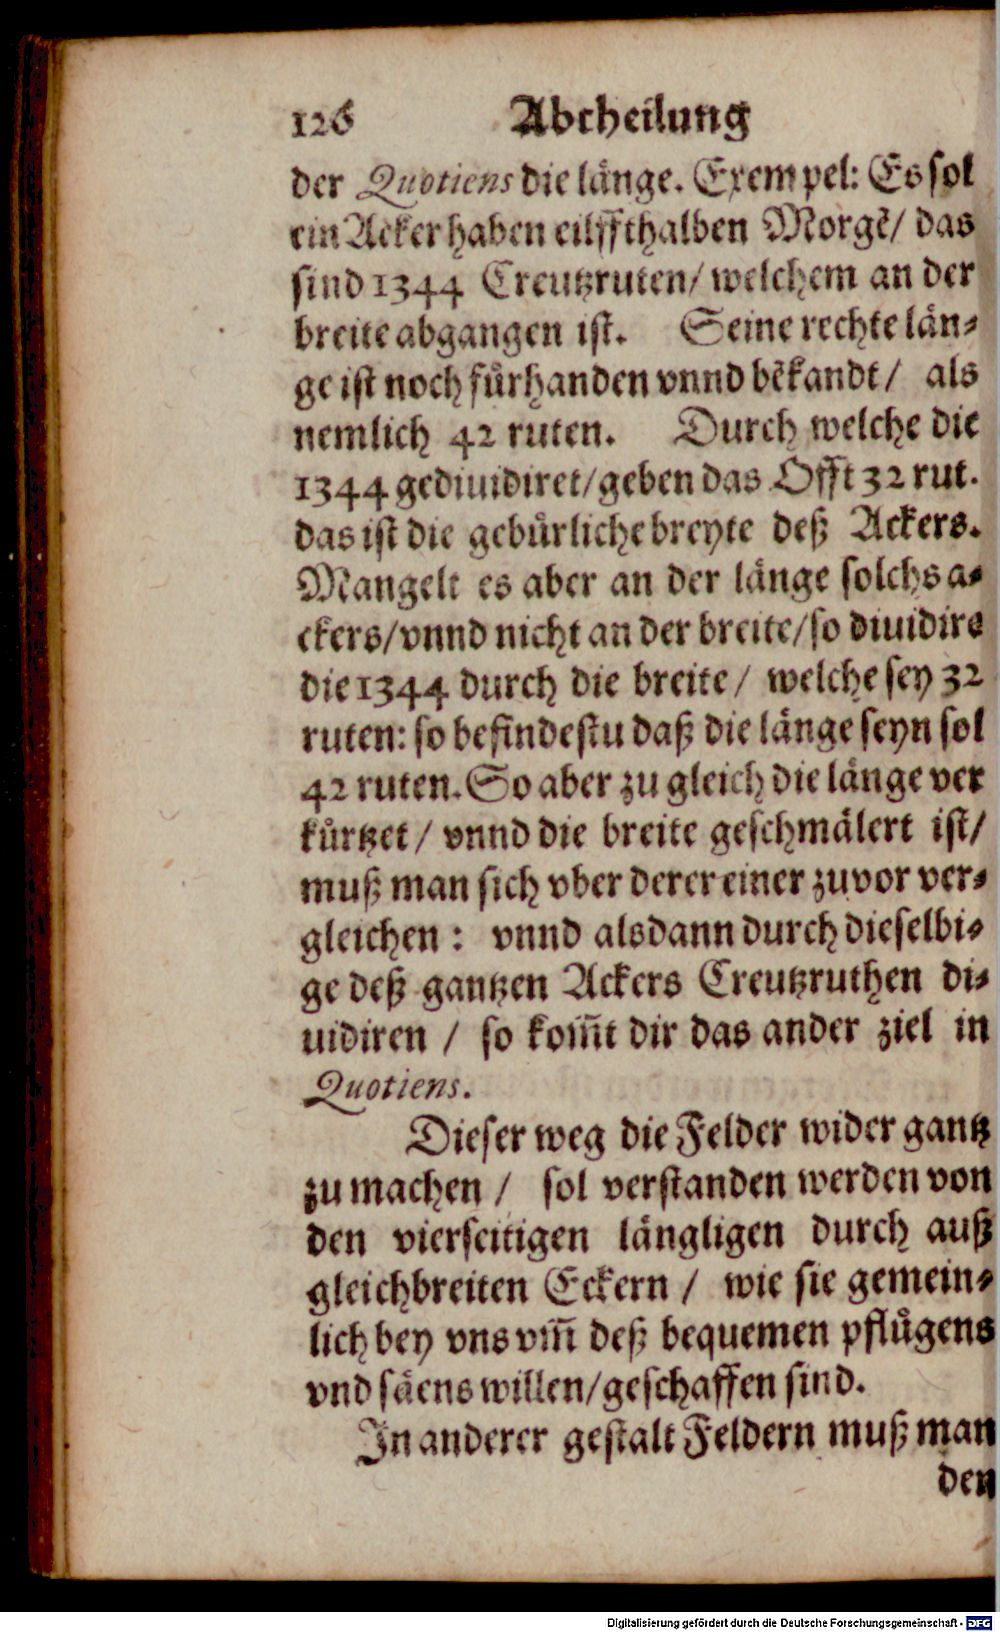 126 Abtheilung
der Quotiens die länge. Exempel: Es sol
ein Acker haben eilffthalben Morgẽ/ das
sind 1344 Creutzruten/ welchem an der
breite abgangen ist. Seine rechte län⸗
ge ist noch fürhanden vnnd bẽkandt/ als
nemlich 42 ruten. Durch welche die
1344 gediuidiret/geben das Offt 32 rut.
das ist die gebürliche breyte deß Ackers.
Mangelt es aber an der länge solchs a⸗
ckers/vnnd nicht an der breite/so diuidire
die 1344 durch die breite/ welche sey 32
ruten: so befindestu daß die länge seyn sol
42 ruten. So aber zu gleich die länge ver
kürtzet/ vnnd die breite geschmälert ist/
muß man sich vber derer einer zuvor ver⸗
gleichen: vnnd alsdann durch dieselbi⸗
ge deß gantzen Ackers Creutzruthen di⸗
uidiren / so kom̃t dir das ander ziel in
Quotiens.
Dieser weg die Felder wider gantz
zu machen / sol verstanden werden von
den vierseitigen längligen durch auß
gleichbreiten Eckern / wie sie gemein⸗
lich bey vns vm̃ deß bequemen pflügens
vnd säens willen/geschaffen sind.
In anderer gestalt Feldern muß man
den
Digitalisierung gefördert durch die Deutsche Forschungsgemeinschaft - DFG